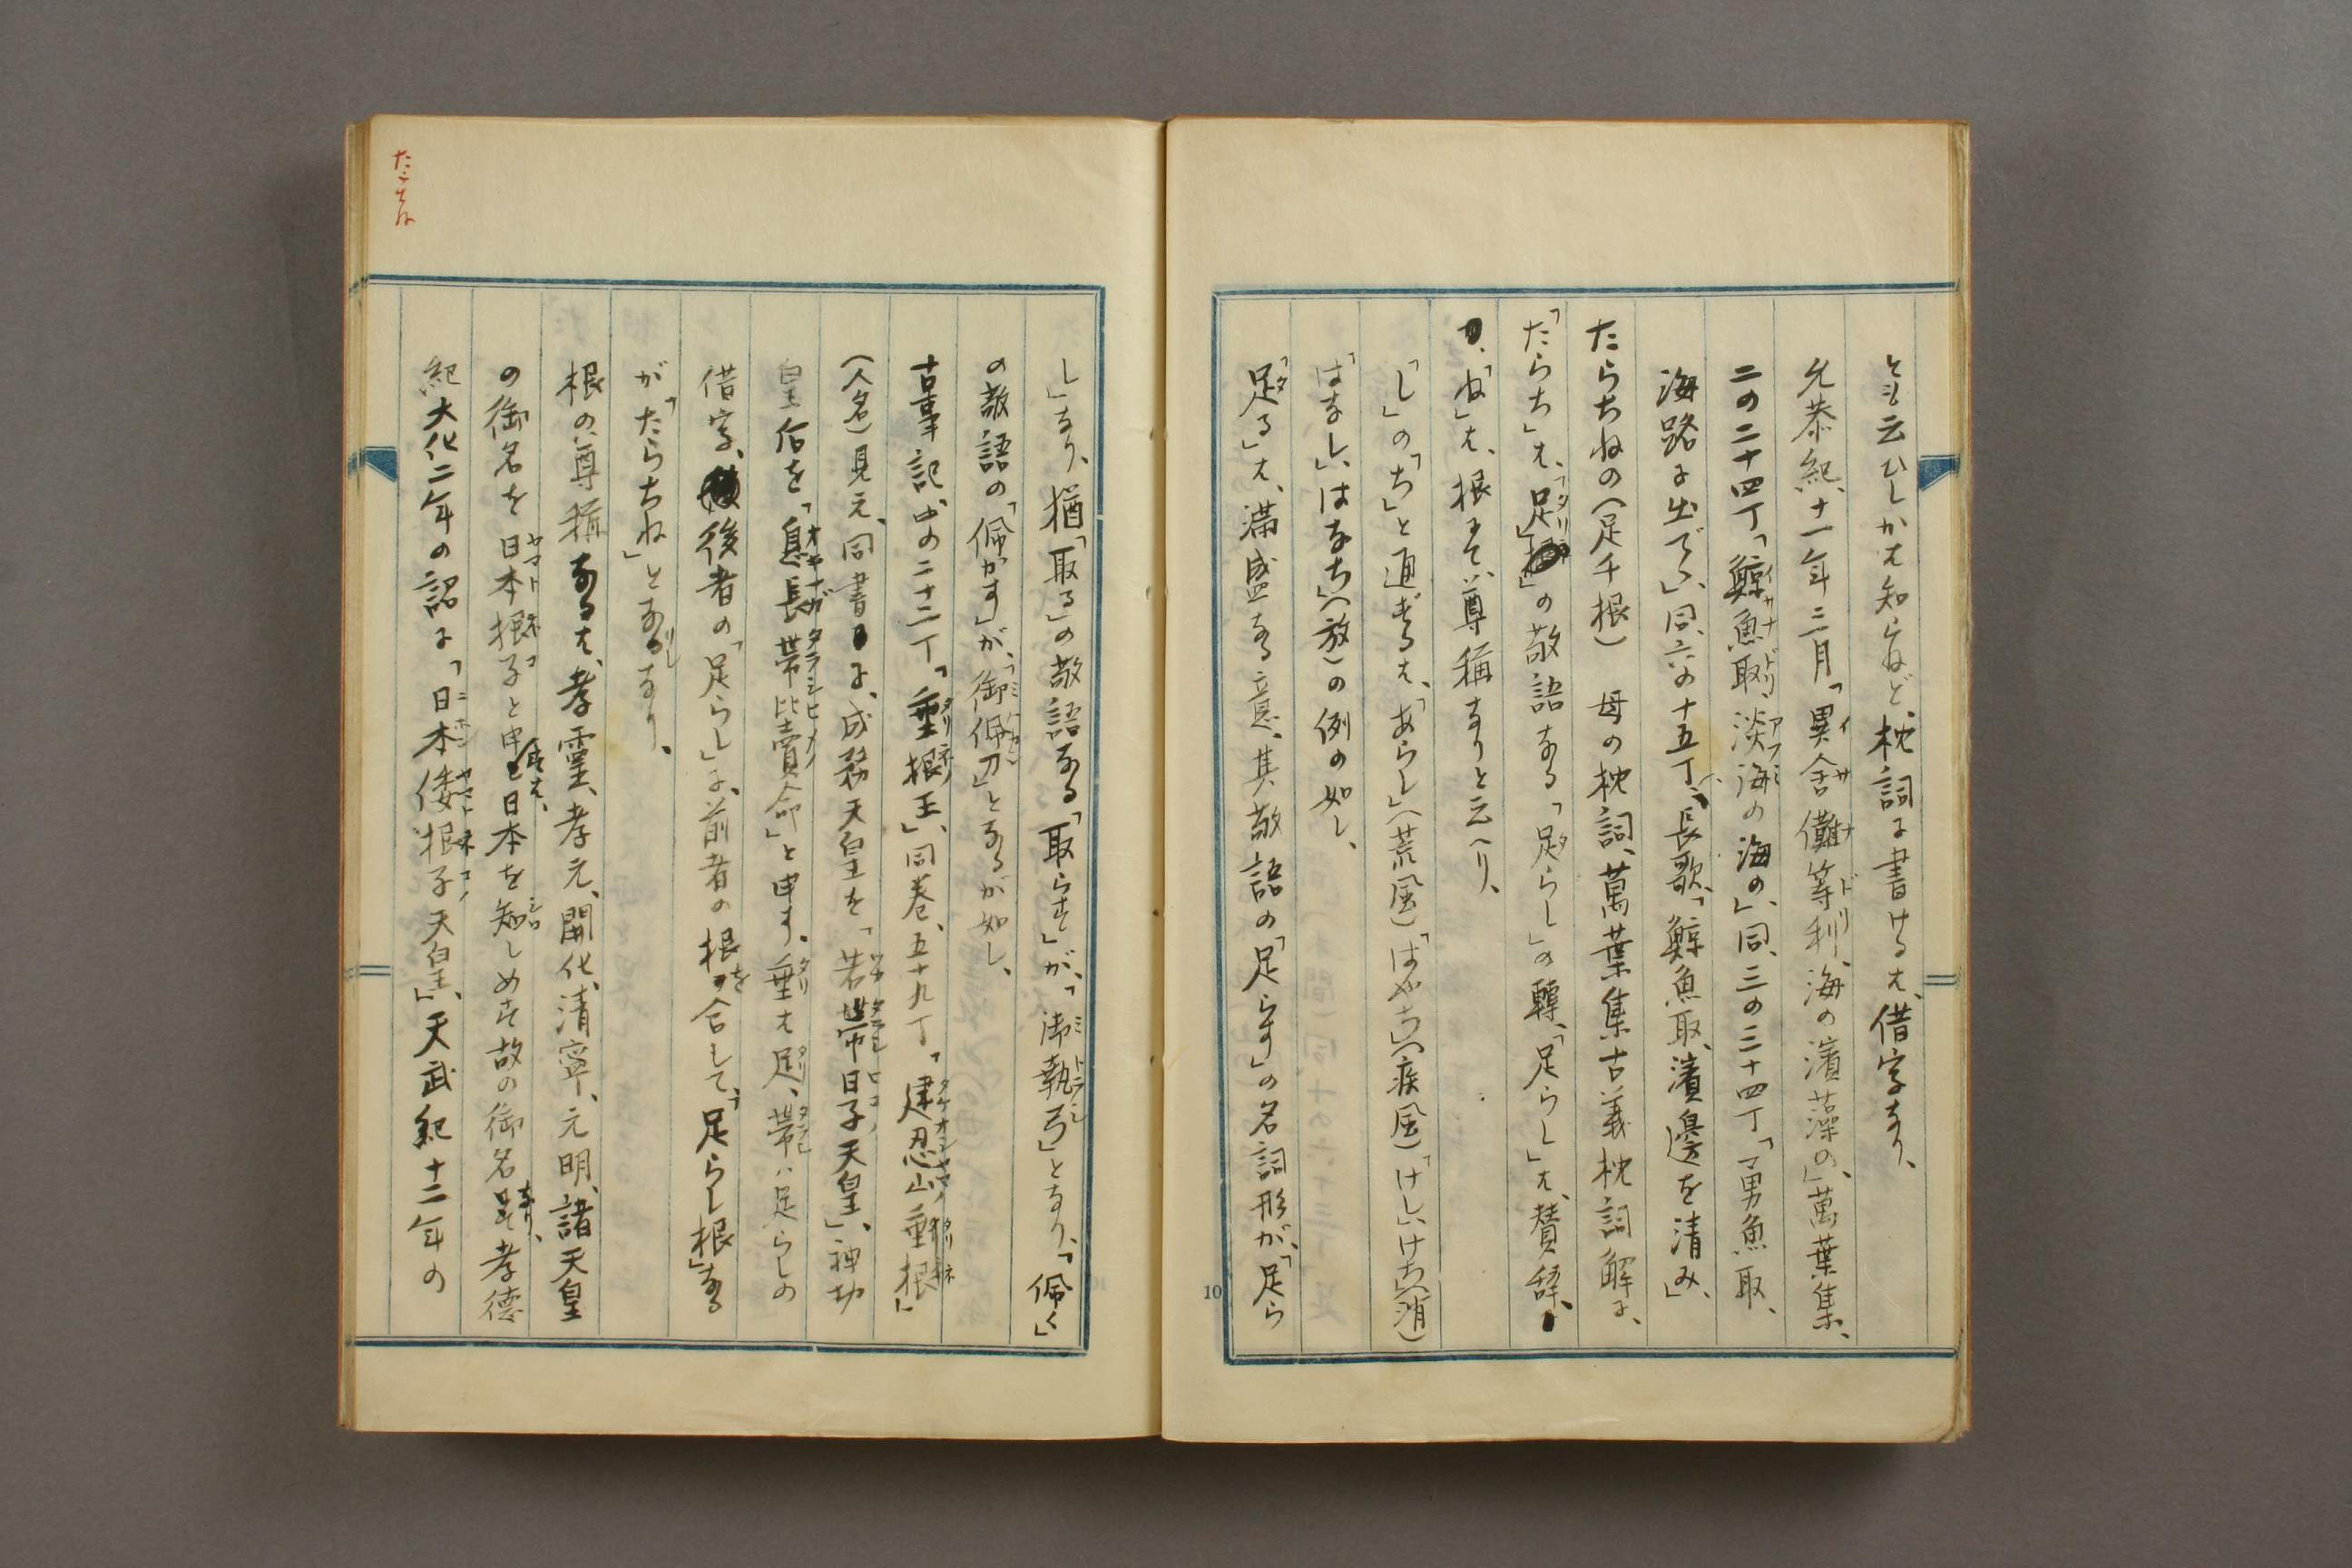 とも云ひしかは知らねど、枕詞に書けるは、借字なり、
允恭紀、十一年三月「異舎儺等利、海の濱藻の」、萬葉集、
二の二十四丁「鯨魚取、淡海の海の」、同、三の三十四丁「勇魚取、
海路に出でゝ」、同、六の十五丁、長歌、「鯨魚取、濱邊を清み」、
たらちねの(足千根) 母の枕詞、萬葉集古義枕詞解に、
「たらち」は、「足」の敬語なる「足らし」の轉、「足らし」は、賛辞、
「ね」は、根にて、尊稱なりと云へり、
「し」の「ち」と通ずるは、「あらし」(荒風)「はやち」(疾風)「けし」、けち」(消)
「はなし」、はなち」(放)の例の如し、
「足る」は、滿盛なる意、其敬語の「足らす」の名詞形が、「足ら
し」なり、猶「取る」の敬語なる「取らす」が、「御執弓」となり、「佩く」
の敬語の「佩かす」が、「御佩刀」となるが如し、
古事記、中の二十二丁「垂根王」、同巻、五十九丁「建忍山垂根」
(人名)見え、同書に、成務天皇を「若帶日子天皇」、神功
皇后を「息長帶比賣命」と申す、垂は足、帶は足らしの
借字、後者の「足らし」に、前者の根を合して、「足らし根」なる
が「たらちね」となりしなり、
根の尊稱なるは、孝靈、孝元、開化、清寧、元明、諸天皇
の御名を日本根子と申すは、日本を知しめす故の御名なり、孝德
紀大化二年の詔に「日本倭根子天皇」、天武紀十二年の
10